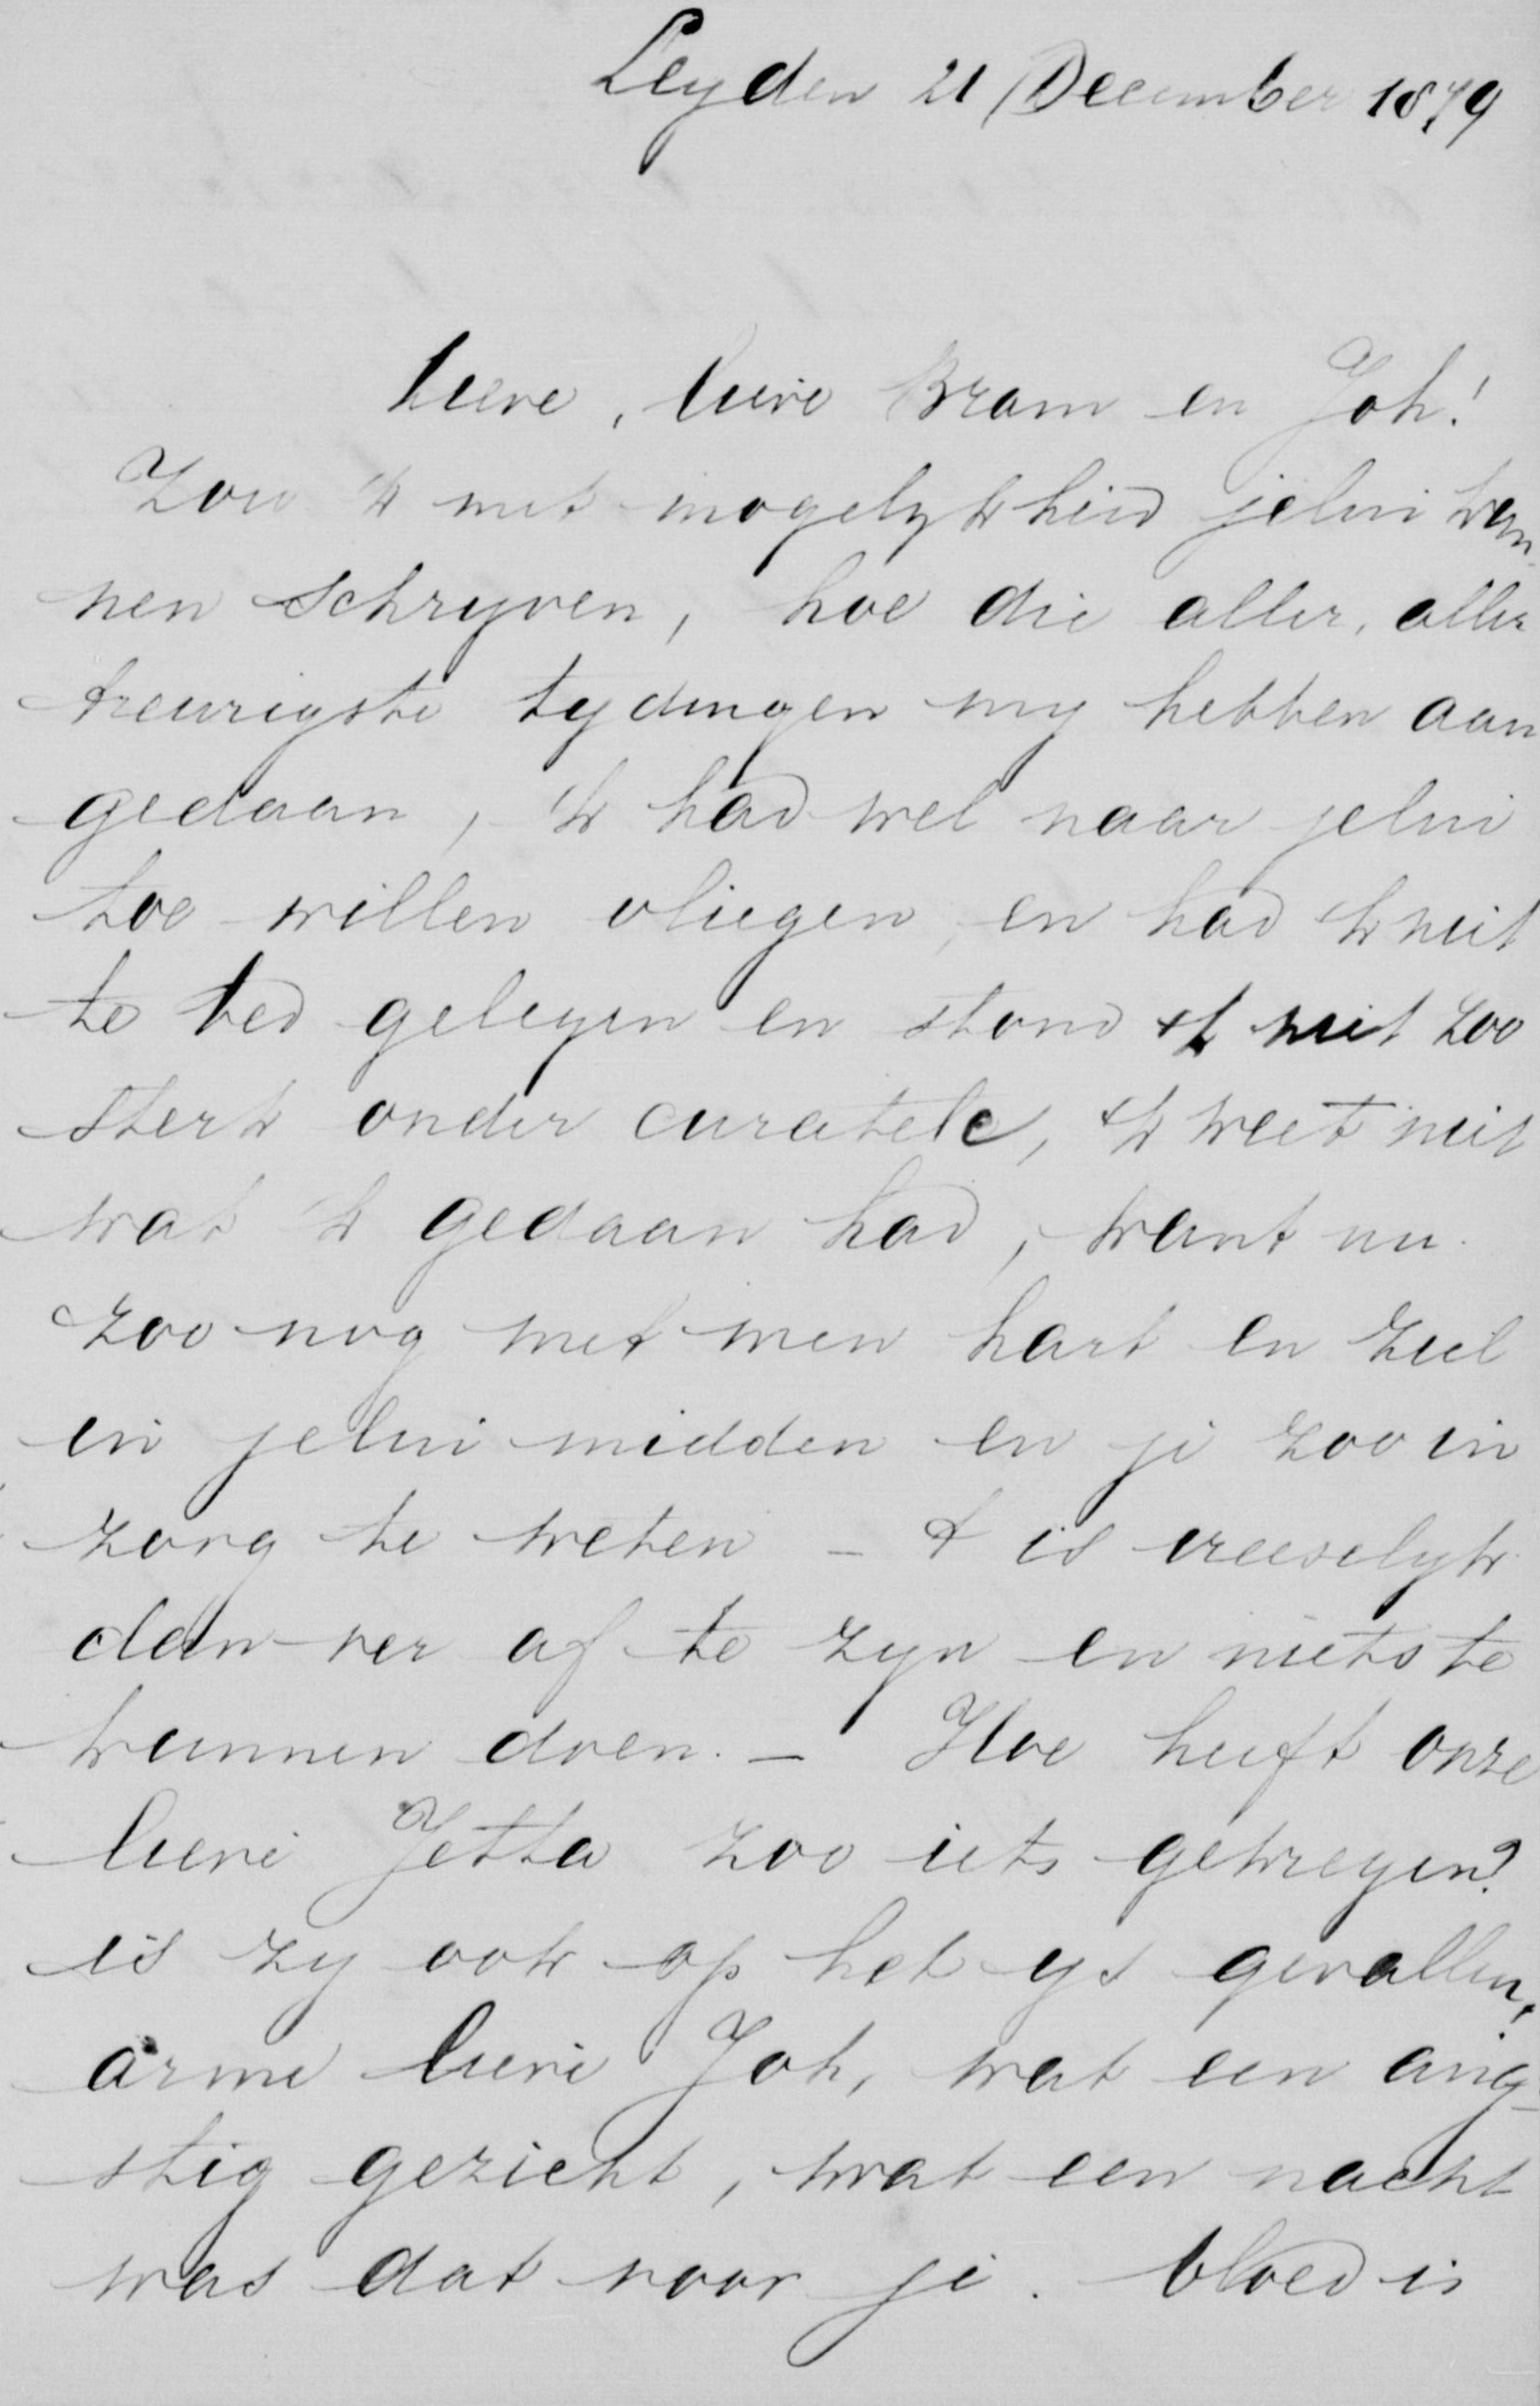 Leyden 21 December 1879
Lieve, lieve Bram en Joh!
Zou 'k met mogelykheid jelui kun
nen schryven, hoe die aller, aller
treurigste tydingen my hebben aan
gedaan, 'k had wel naar jelui
toe willen vliegen, en had 'k niet
te bed gelegen en stond ik niet zoo
sterk onder curatele, 'k weet niet
wat 'k gedaan had, want nu
zoo nog met men hart en ziel
in jelui midden en je zoo in
zorg te weten _ 't is vreeselyk
dan ver af te zyn en niets te
kunnen doen. _ Hoe heeft onze
lieve Jetta zoo iets gekregen?
is zy ook op het ys gevallen,
arme lieve Joh, wat een ang-
stig gezicht, wat een nacht
was dat voor je. bloed is